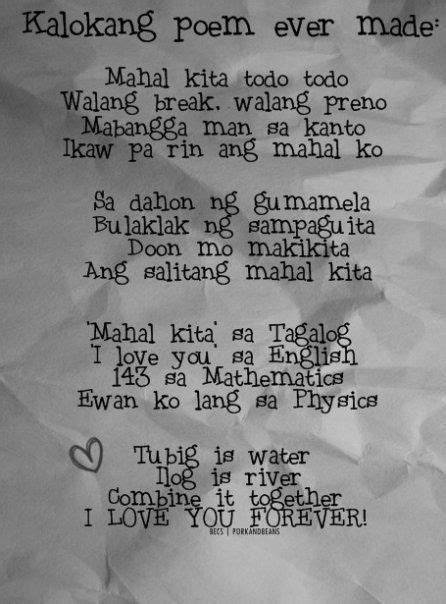 Kalokang poem ever made:
Mahal kita todo todo
Walang break. walang preno
Mabangga man sa kanto
Ikaw pa rin ang mahal ko
Sa dahon ng gumamela
Bulaklak ng sampaguita
Doon mo makikita
Ang salitang mahal kita
'Mahal kita' sa Tagalog
'I love you' sa English
143 sa Mathematics
Ewan ko lang sa Physics
Tubig is water
Ilog is river
Combine it together
I LOVE YOU FOREVER!
BECS | PORKANDBEANS